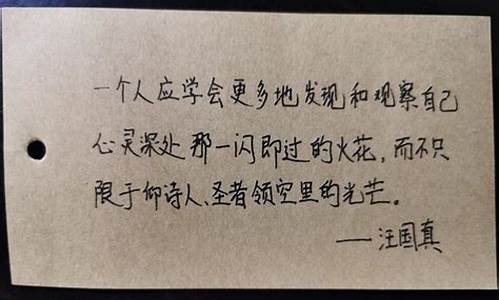 一个人应学会更多地发现和观察自己
心灵深处那一闪即过的火花，而不只
限于仰诗人、圣者领空里的光芒。
——汪国真